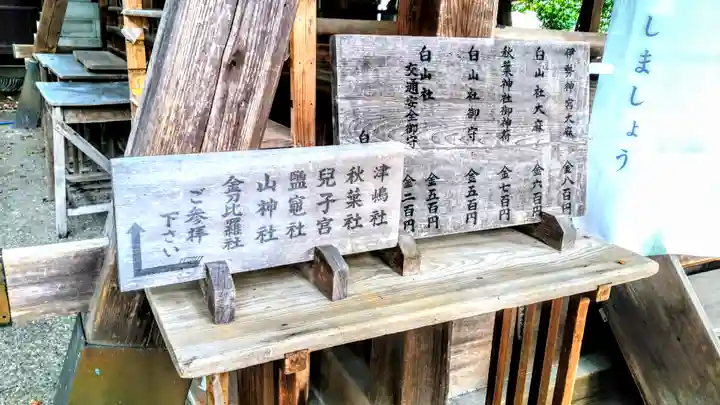 伊勢神宮大麻 金八百円
白山社大麻 金六百円
秋葉神社御神符 金七百円
白山社御守 金五百円
白山社
交通安全御守 金五百円
白
金二百円
津嶋社
秋葉社
兒子宮
鹽竈社
山神社
金刀比羅社
ご参拝
下さい
しましょう